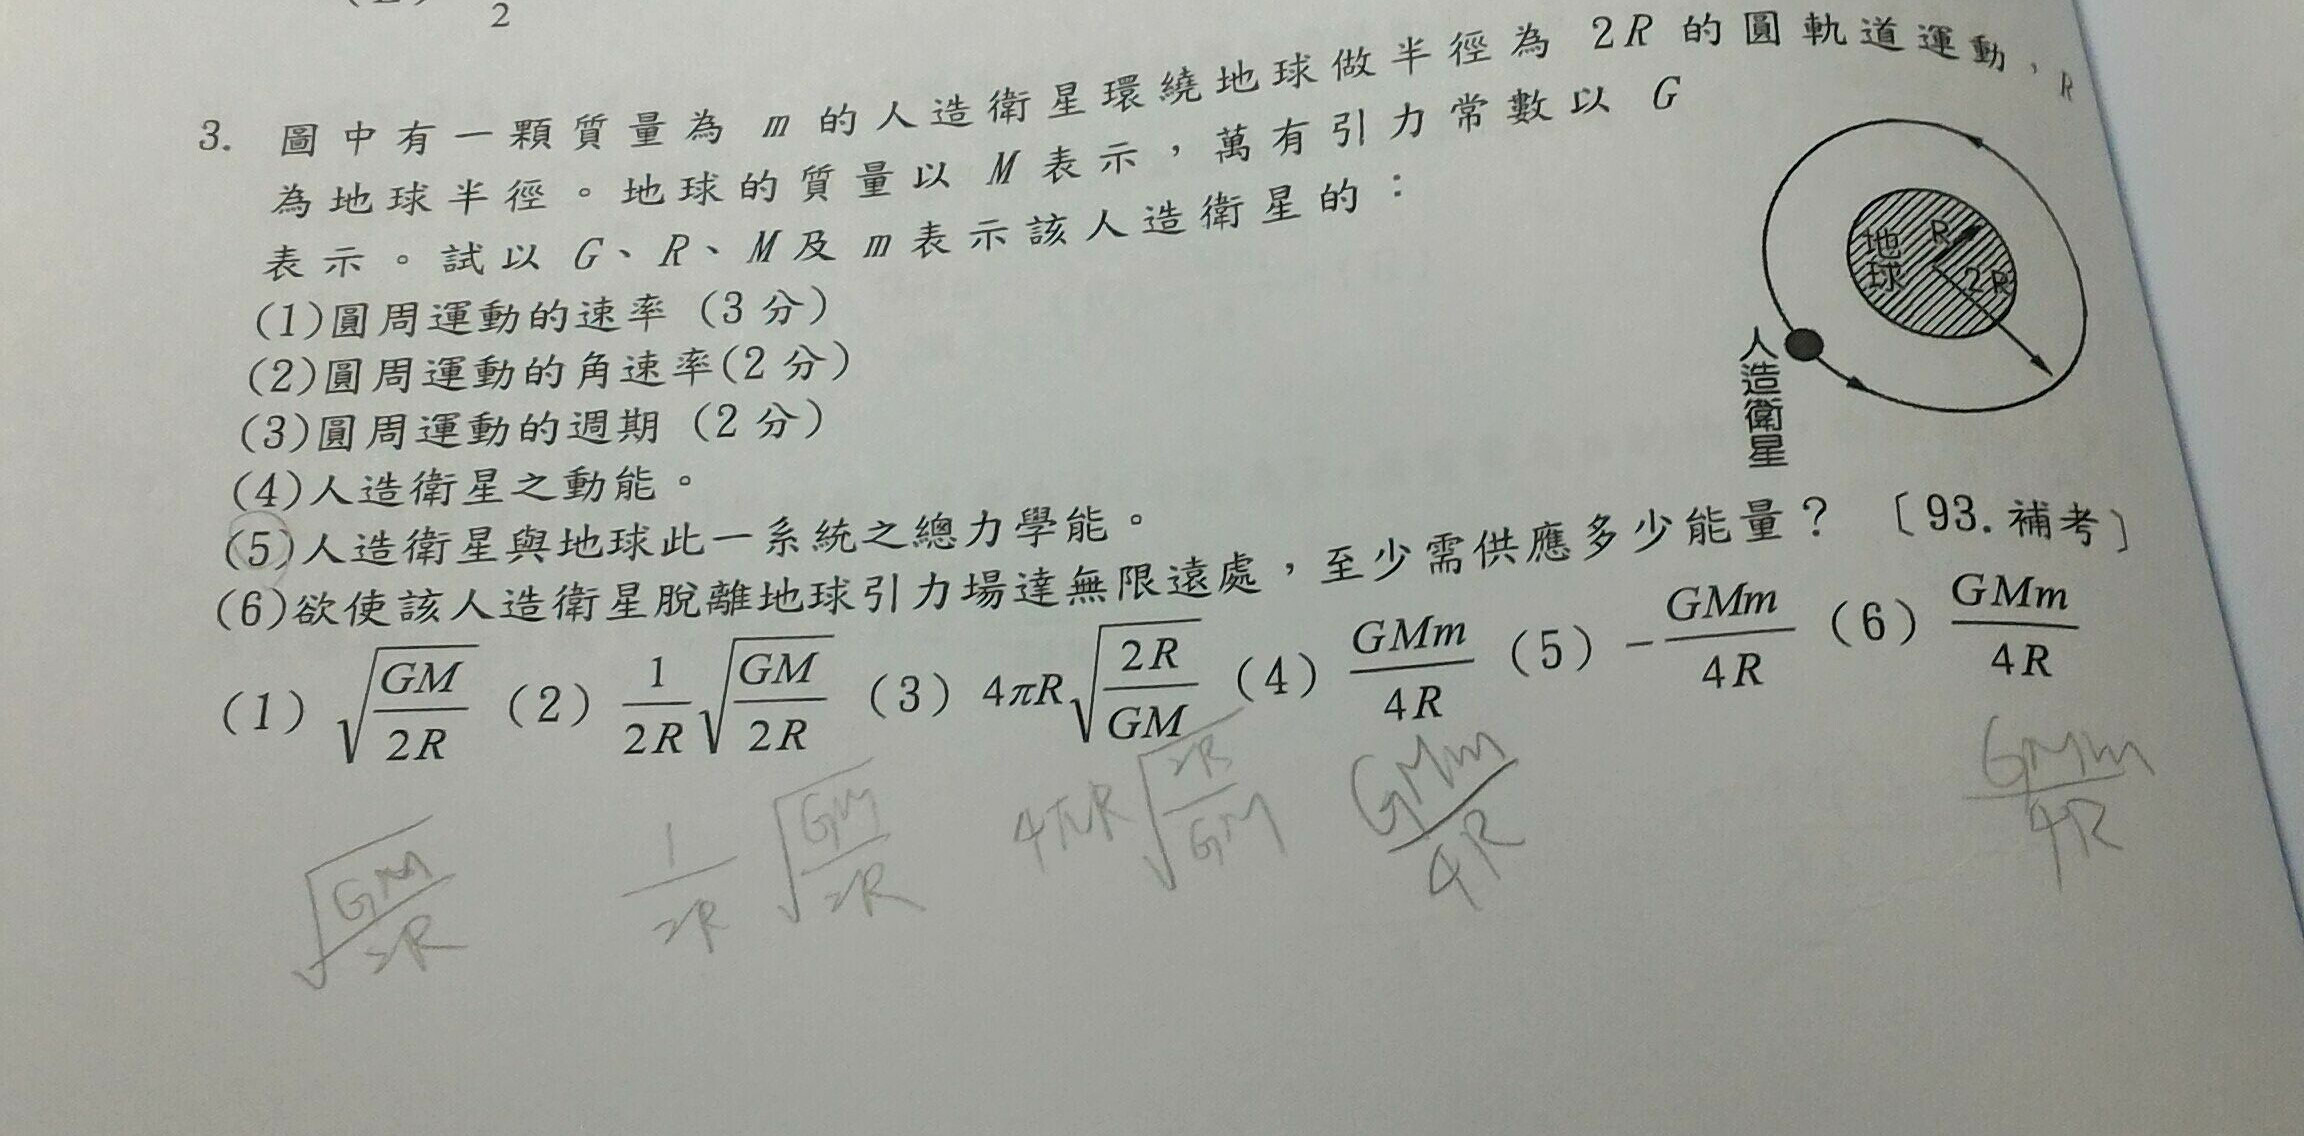 2
3. 圖中有一顆質量為 m 的人造衛星環繞地球做半徑為 2R 的圓軌道運動，R
為地球半徑。地球的質量以 M 表示，萬有引力常數以 G
表示。試以 G、R、M及 m表示該人造衛星的：
(1)圓周運動的速率 (3 分)
(2)圓周運動的角速率(2 分)
(3)圓周運動的週期 (2 分)
(4)人造衛星之動能。
(5)人造衛星與地球此一系統之總力學能。
(6)欲使該人造衛星脫離地球引力場達無限遠處，至少需供應多少能量？〔93.補考〕
地球
R
2R
人造衛星
(1) √(GM/2R) (2) 1/2R √(GM/2R) (3) 4πR√(2R/GM) (4) GMm/4R (5) -GMm/4R (6) GMm/4R
√(GM/2R) 1/2R √(GM/2R) 4πR√(2R/GM) GMm/4R GMm/4R